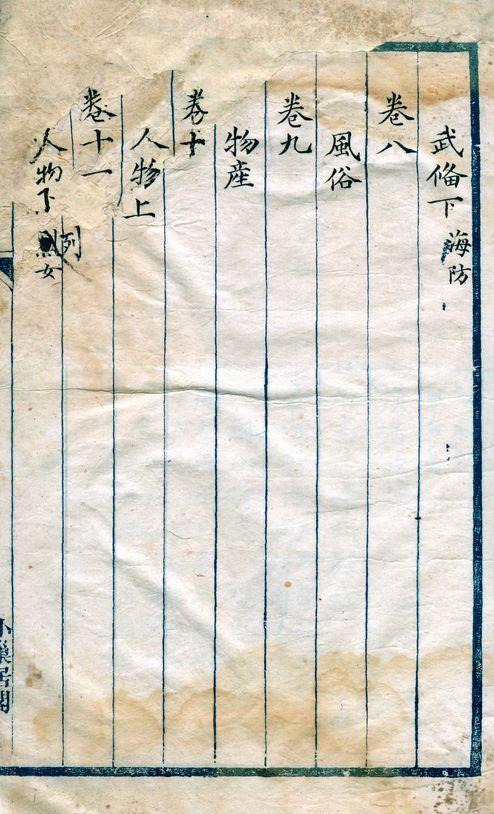 武備下 海防
卷八
風俗
卷九
物産
卷十
人物上
卷十一
人物下 列女
居閣